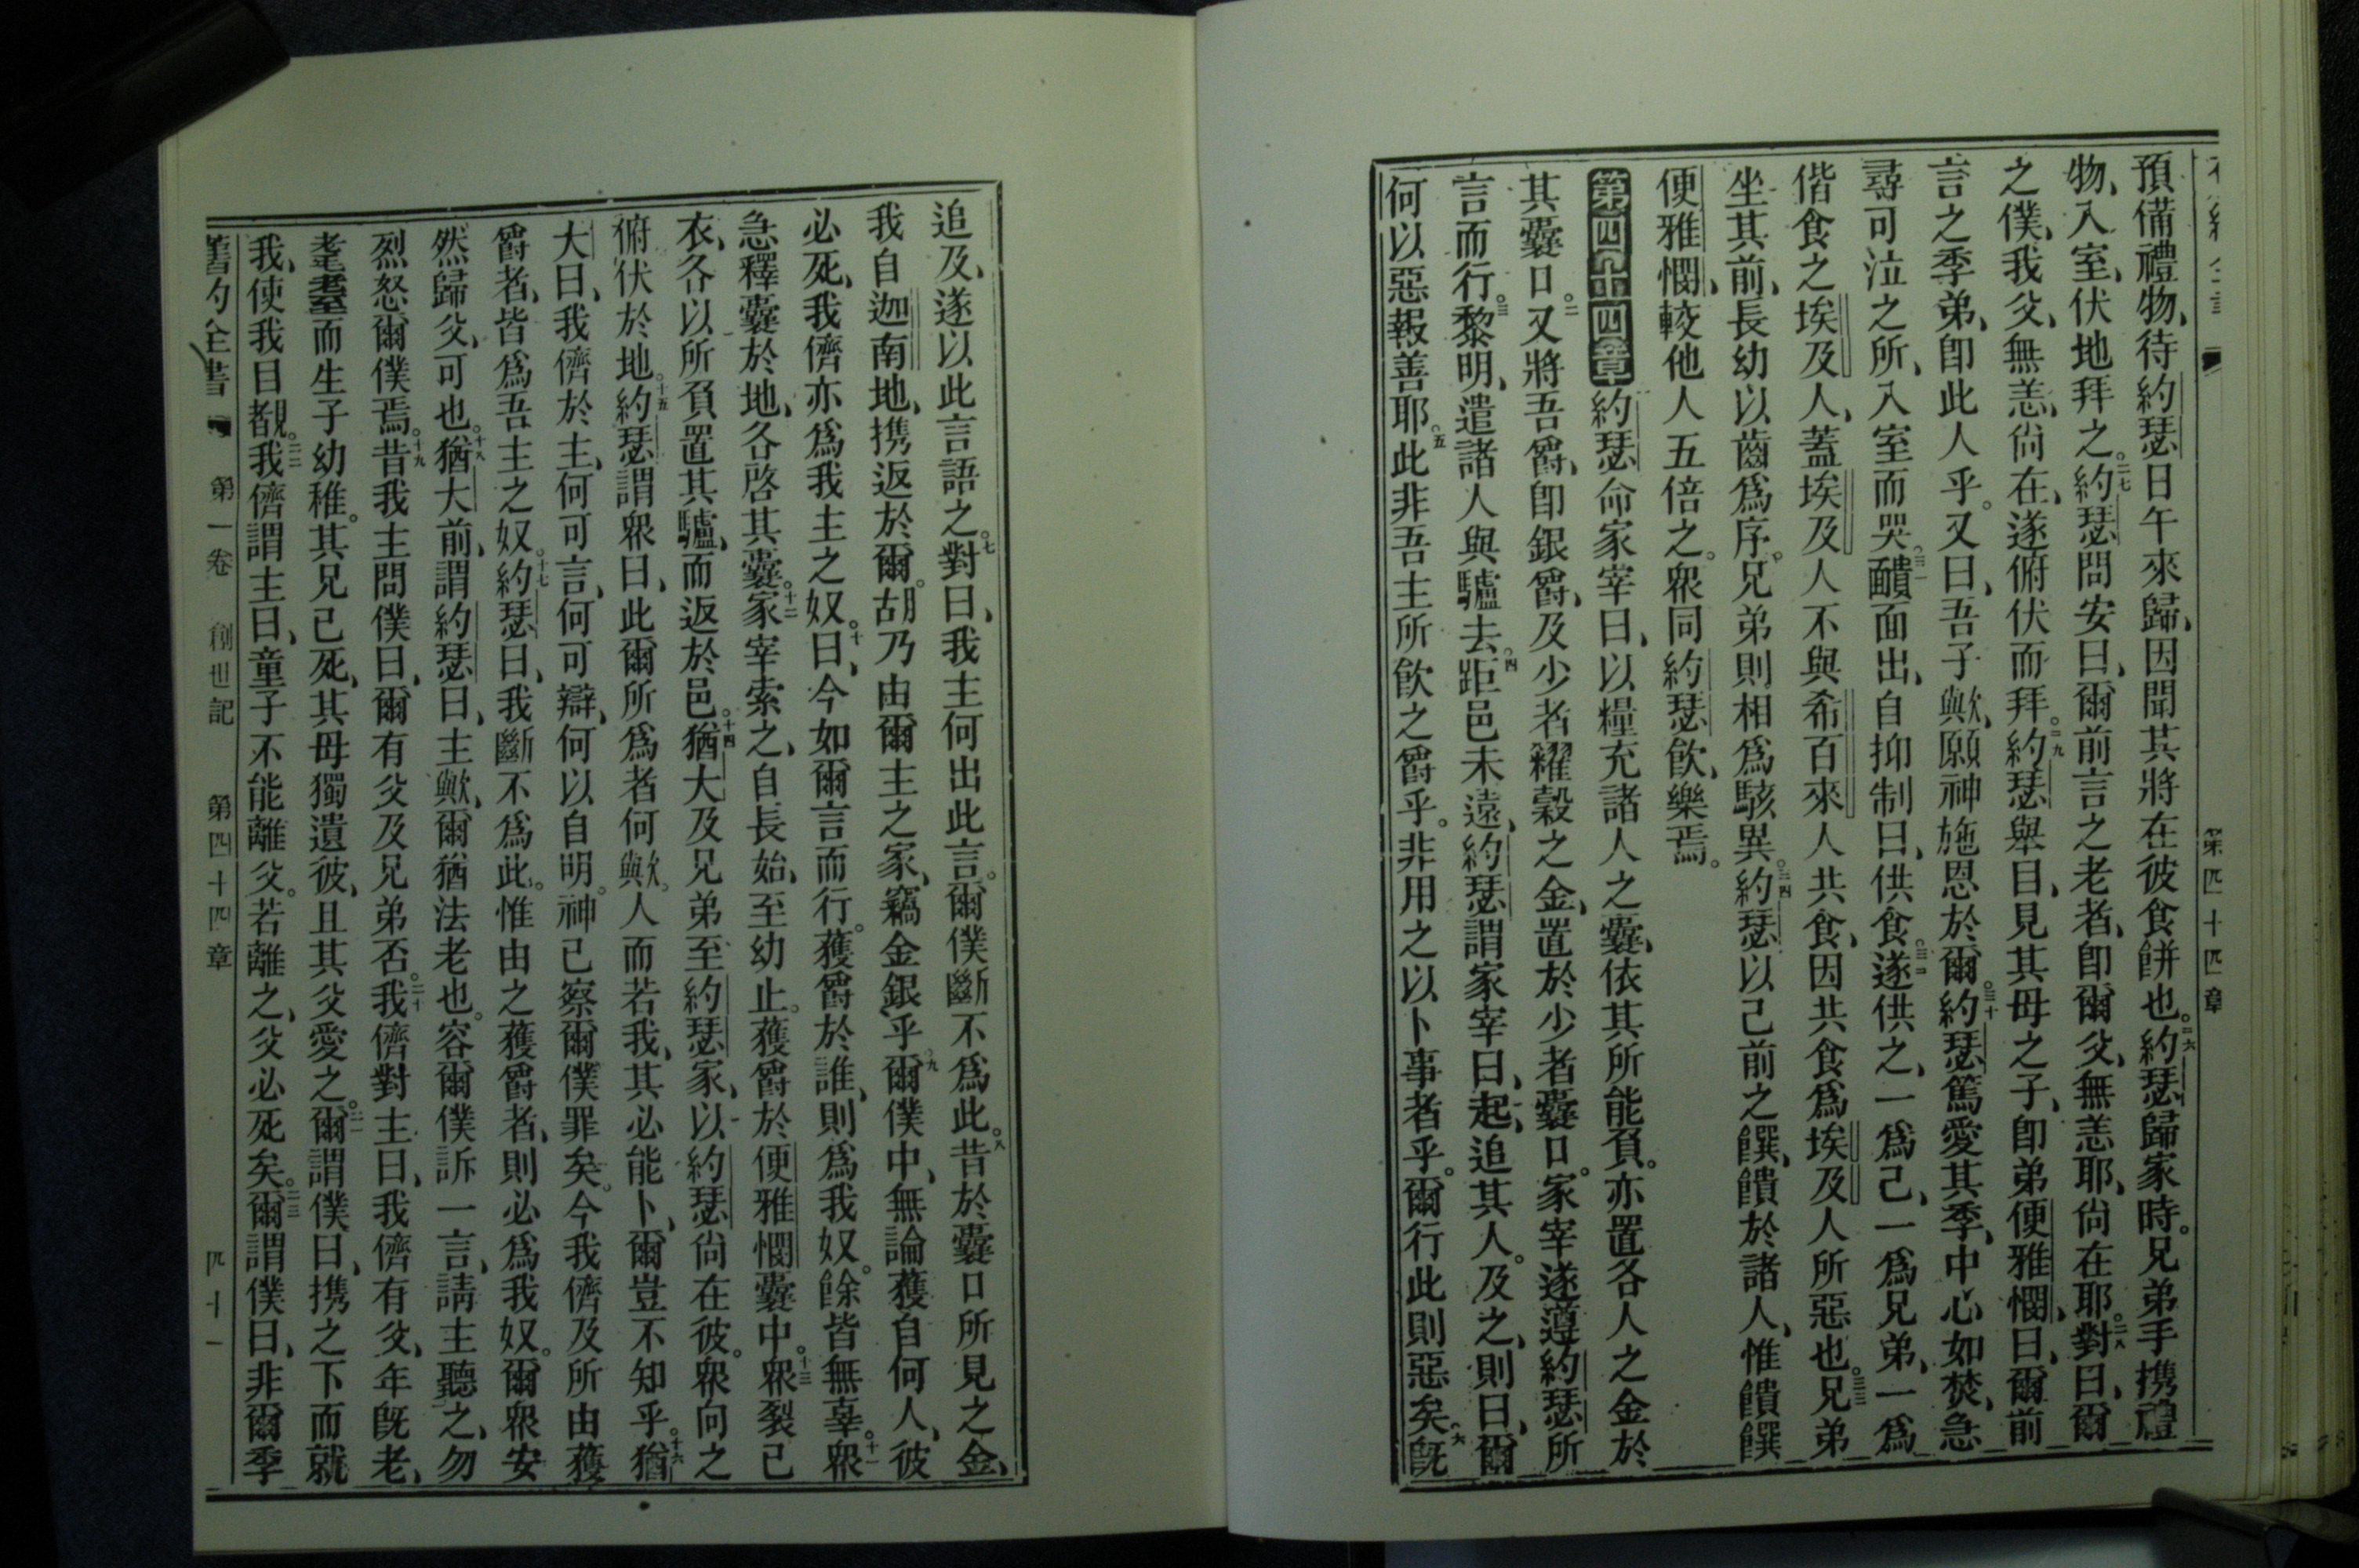 第四十四章
預備禮物、待約瑟日午來歸、因聞其將在彼食餠也。二六約瑟歸家時。兄弟手携禮
物、入室、伏地拜之。二七約瑟問安曰、爾前言之老者、卽爾父、無恙耶、尙在耶。二八對曰、爾
之僕、我父、無恙、尙在、遂俯伏而拜。二九約瑟舉目、見其母之子、卽弟便雅憫、曰、爾前
言之季弟、卽此人乎。又曰、吾子歟、願神施恩於爾。三十約瑟篤愛其季、中心如焚、急
尋可泣之所、入室而哭。三一靧面出、自抑制曰、供食。三二遂供之、一爲己、一爲兄弟、一爲
偕食之埃及人、蓋埃及人不與希百來人共食、因共食爲埃及人所惡也。三三兄弟
坐其前、長幼以齒爲序。兄弟則相爲駭異。三四約瑟以己前之饌、饋於諸人、惟饋饌
便雅憫、較他人五倍之。衆同約瑟飮、樂焉。
第四十四章約瑟命家宰曰、以糧充諸人之囊、依其所能負。亦置各人之金於
其囊口。二又將吾爵、卽銀爵、及少者糴穀之金、置於少者囊口。家宰遂遵約瑟所
言而行。三黎明、遣諸人與驢去。四距邑未遠、約瑟謂家宰曰、起、追其人。及之、則曰、爾
何以惡報善耶。五此非吾主所飮之爵乎。非用之以卜事者乎。爾行此則惡矣。六旣
追及、遂以此言語之。七對曰、我主何出此言。爾僕斷不爲此。八昔於囊口所見之金、
我自迦南地、携返於爾。胡乃由爾主之家、竊金銀乎。九爾僕中、無論獲自何人、彼
必死、我儕亦爲我主之奴。十曰、今如爾言而行。獲爵於誰、則爲我奴。餘皆無辜。十一衆
急釋囊於地、各啓其囊。十二家宰索之、自長始、至幼止。獲爵於便雅憫囊中。十三衆裂己
衣、各以所負置其驢、而返於邑。十四猶大及兄弟至約瑟家、以約瑟尙在彼。衆向之
俯伏於地。十五約瑟謂衆曰、此爾所爲者何歟。人而若我、其必能卜、爾豈不知乎。十六猶
大曰、我儕於主、何可言、何可辯、何以自明。神已察爾僕罪矣。今我儕及所由獲
爵者、皆爲吾主之奴。十七約瑟曰、我斷不爲此。惟由之獲爵者、則必爲我奴。爾衆安
然歸父、可也。十八猶大前、謂約瑟曰、主歟、爾猶法老也。容爾僕訴一言、請主聽之、勿
烈怒爾僕焉。十九昔我主問僕曰、爾有父及兄弟否。二十我儕對主曰、我儕有父、年旣老、
耄耋而生子幼稚。其兄已死、其母獨遺彼、且其父愛之。二一爾謂僕曰、携之下而就
我、使我目覩。二二我儕謂主曰、童子不能離父。若離之、父必死矣。二三爾謂僕曰、非爾季
舊約全書 第一卷 創世記 第四十四章 四十一